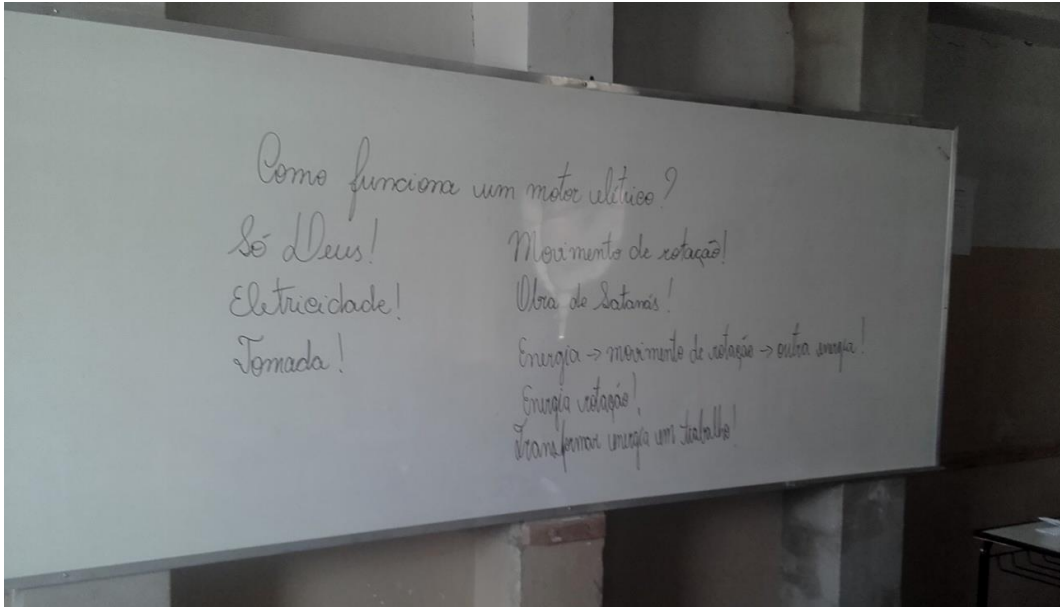 Como funciona um motor elétrico?
Só Deus!
Eletricidade!
Tomada!
Movimento de rotação!
Obra de Satanás!
Energia → movimento de rotação → outra energia!
Energia rotação!
Transformar energia em trabalho!